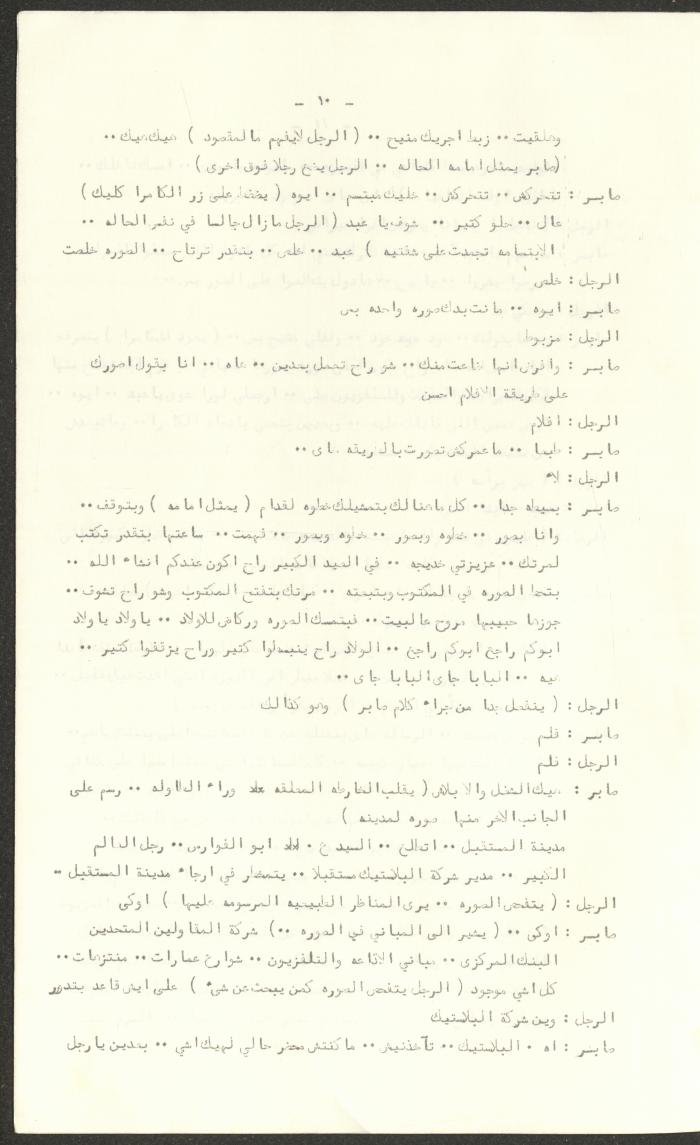 - ١٠ -
وهلقيت ٠٠ زبط اجريك منيح ٠٠ ( الرجل لايفهم مالمقصود ) هيك هيك ٠٠
(صابر يمثل امامه الحاله ٠٠ الرجل يضع رجلا فوق اخرى )
صابر : تتحركش ٠٠ تتحركش ٠٠ خليك مبتسم ٠٠ ايوه ( يضغط على زر الكامرا كليك )
عال ٠٠ حلو كتير ٠٠ شوف يا عبد ( الرجل مازال جالسا في نفس الحاله ٠٠
الابتسامه تجمدت على شفتيه ) عبد ٠٠ خلص ٠٠ بتقدر ترتاح ٠٠ الصوره خلصت
الرجل : خلص
صابر : ايوه ٠٠ مانت بدك صوره واحده بس
الرجل : مزبوط
صابر : وافرض انها ضاعت منك ٠٠ شو راح تعمل بعدين ٠٠ هاه ٠٠ انا بقول اصورك
على طريقة الافلام احسن
الرجل : افلام
صابر : طبعا ٠٠ ماعمركش تصورت بالطريقه هاى ٠٠
الرجل : لاء
صابر : بسيطه جدا ٠٠ كل ماهنالك بتمشيلك خطوه لقدام ( يمثل امامه ) وبتوقف ٠٠
وانا بصور ٠٠ خطوه وبصور ٠٠ خطوه وبصور ٠٠ فهمت ٠٠ ساعتها بتقدر تكتب
لمرتك ٠٠ عزيزتي خديجه ٠٠ في العيد الكبير راح اكون عندكم انشاء الله ٠٠
بتحط الصوره في المكتوب وبتبعته ٠٠ مرتك بتفتح المكتوب وشو راح تشوف ٠٠
جوزها حبيبها مروح عالبيت ٠٠ فبتمسك الصوره وركاض للاولاد ٠٠ يا ولاد يا ولاد
ابوكم راجع ابوكم راجع ٠٠ الولاد راح ينبسطوا كتير وراح يزقفوا كتير ٠٠
هيه ٠٠ البابا جاى البابا جاى ٠٠
الرجل : ( ينفعل جدا من جراء كلام صابر ) وهو كذالك
صابر : فلم
الرجل : فلم
صابر : هيك الشغل والا بلاش ( يقلب الخارطه المعلقه وراء الطاوله ٠٠ رسم على
الجانب الاخر منها صوره لمدينه )
مدينة المستقبل ٠٠ اتطلع ٠٠ السيد ع ٠ ابو الفوارس ٠٠ رجل العالم
الكبير ٠٠ مدير شركة البلاستيك مستقبلا ٠٠ يتمخطر في ارجاء مدينة المستقبل ٠٠
الرجل : ( يتفحص الصوره ٠٠ يرى المناظر الطبيعيه المرسومه عليها ) اوكى
صابر : اوكى ٠٠ ( يشير الى المباني في الصوره ٠٠) شركة المقاولين المتحدين
البنك المركزى ٠٠ مباني الاذاعه والتلفزيون ٠٠ شوارع عمارات ٠٠ منتزهات ٠٠
كل اشي موجود ( الرجل يتفحص الصوره كمن يبحث عن شيء ) على ايش قاعد بتدور
الرجل : وين شركة البلاستيك
صابر : اه ٠ البلاستيك ٠٠ تآخذنيش ٠٠ ماكنتش محضر حالي لهيك اشي ٠٠ بعدين يا رجل